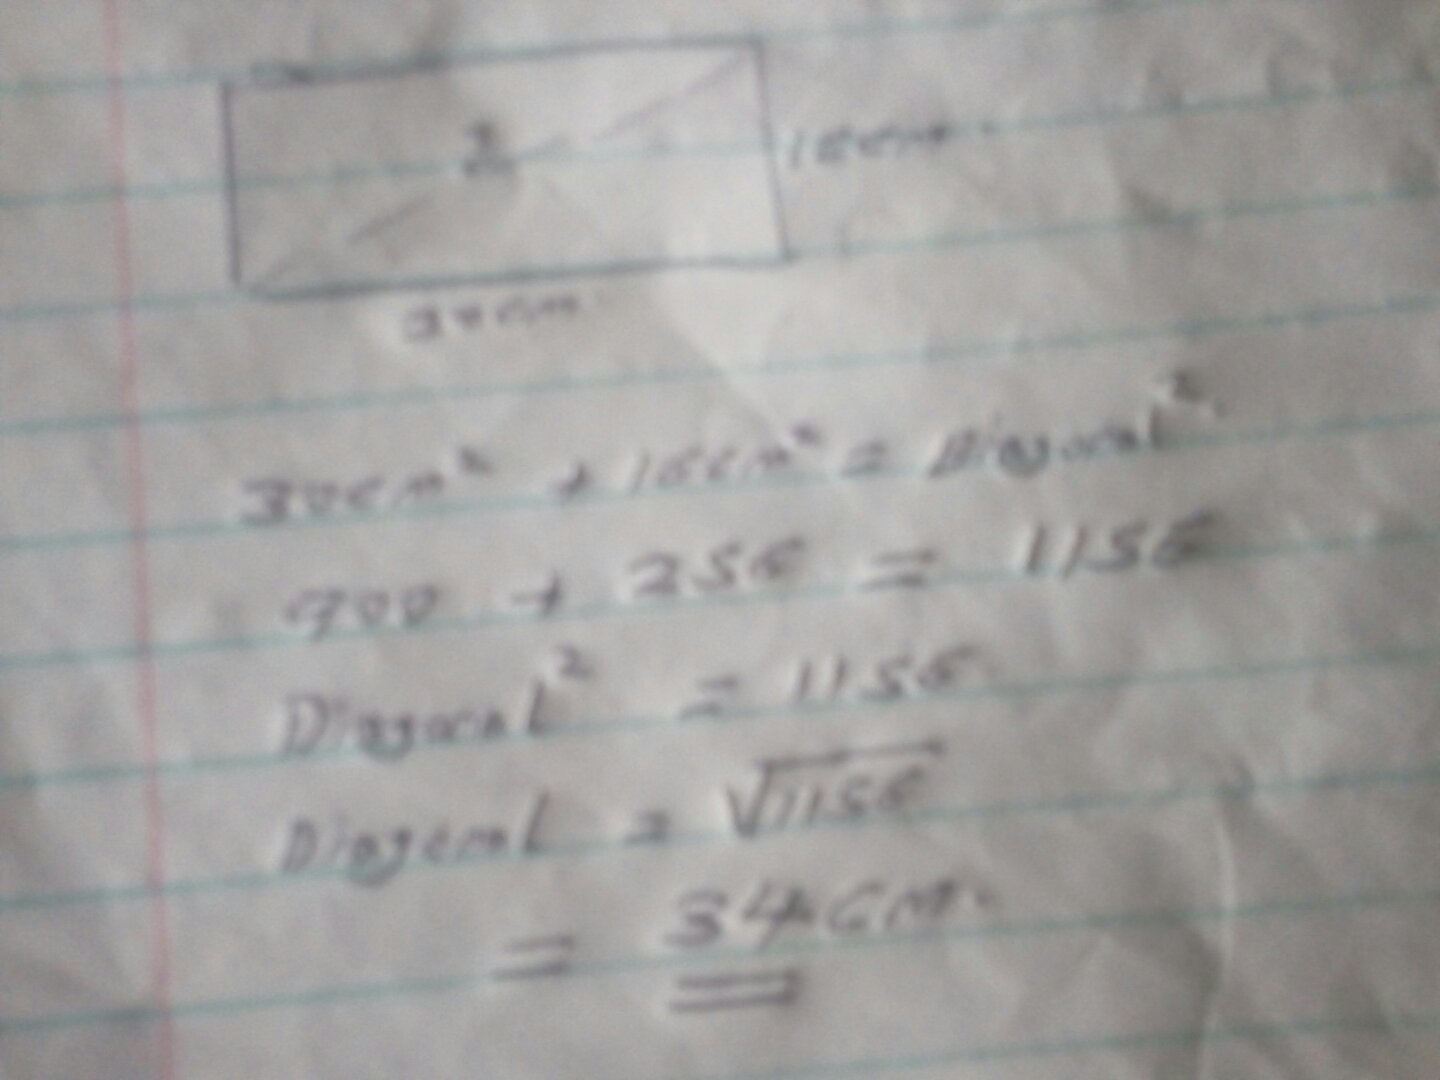 16cm.
30cm.
30cm² + 16cm² = Diagonal².
900 + 256 = 1156
Diagonal² = 1156.
Diagonal = √1156
= 34cm.